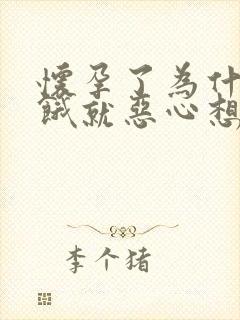 懷孕了為什
餓就惡心想
李个猪